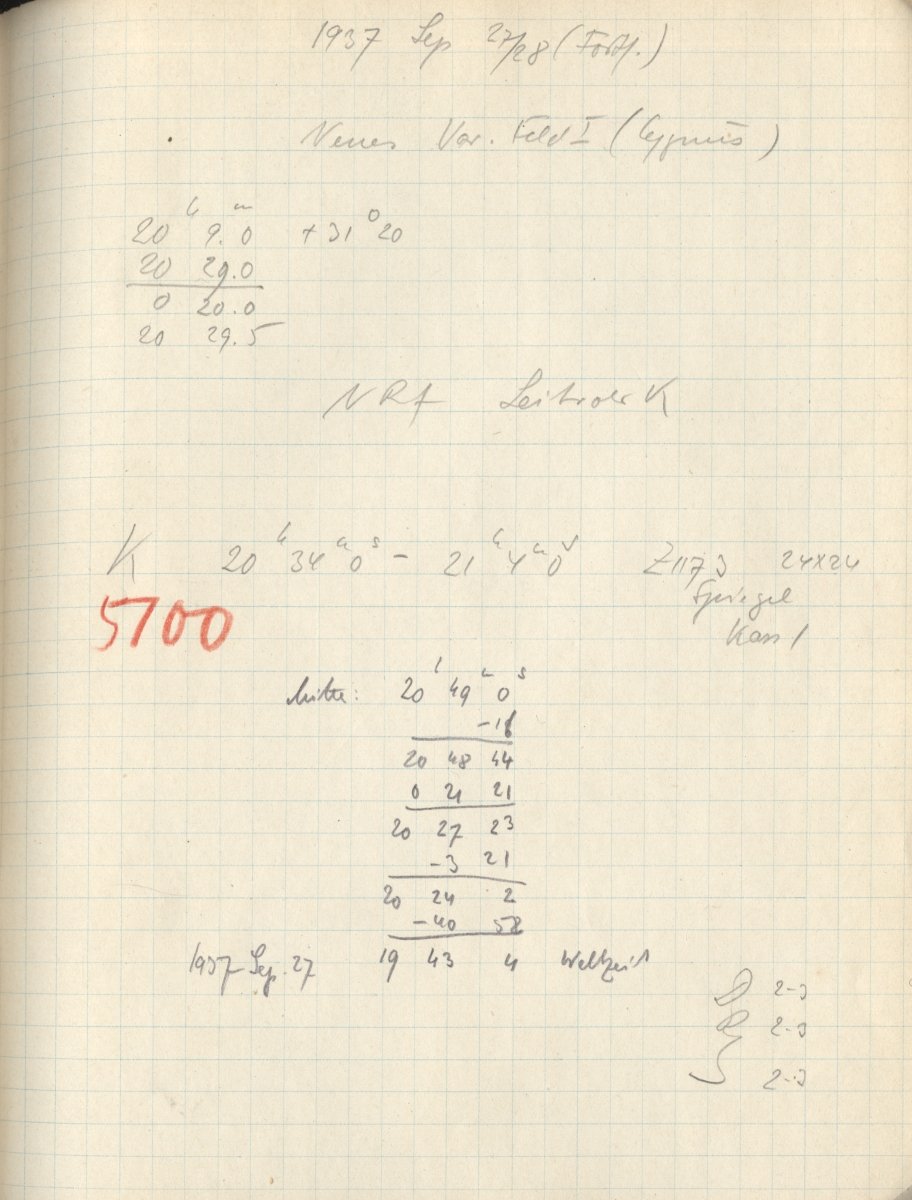 1937 Sep 27/28 (Forts.)
Neues Var. Feld I (Cygnus)
20ʰ 9.0ᵐ +31° 20
20 29.0
0 20.0
20 29.5
NRf Leitrohr K
K 20ʰ 34ᵐ 0ˢ - 21ʰ 4ᵐ 0ˢ Z1173 24x24
Spiegel
5700
Kass 1
Mitte: 20ʰ 49ᵐ 0ˢ
-16
20 48 44
0 21 21
20 27 23
-3 21
20 24 2
-40 58
1937 Sep. 27 19 43 4 Weltzeit
D 2-3
R 2-3
S 2-3